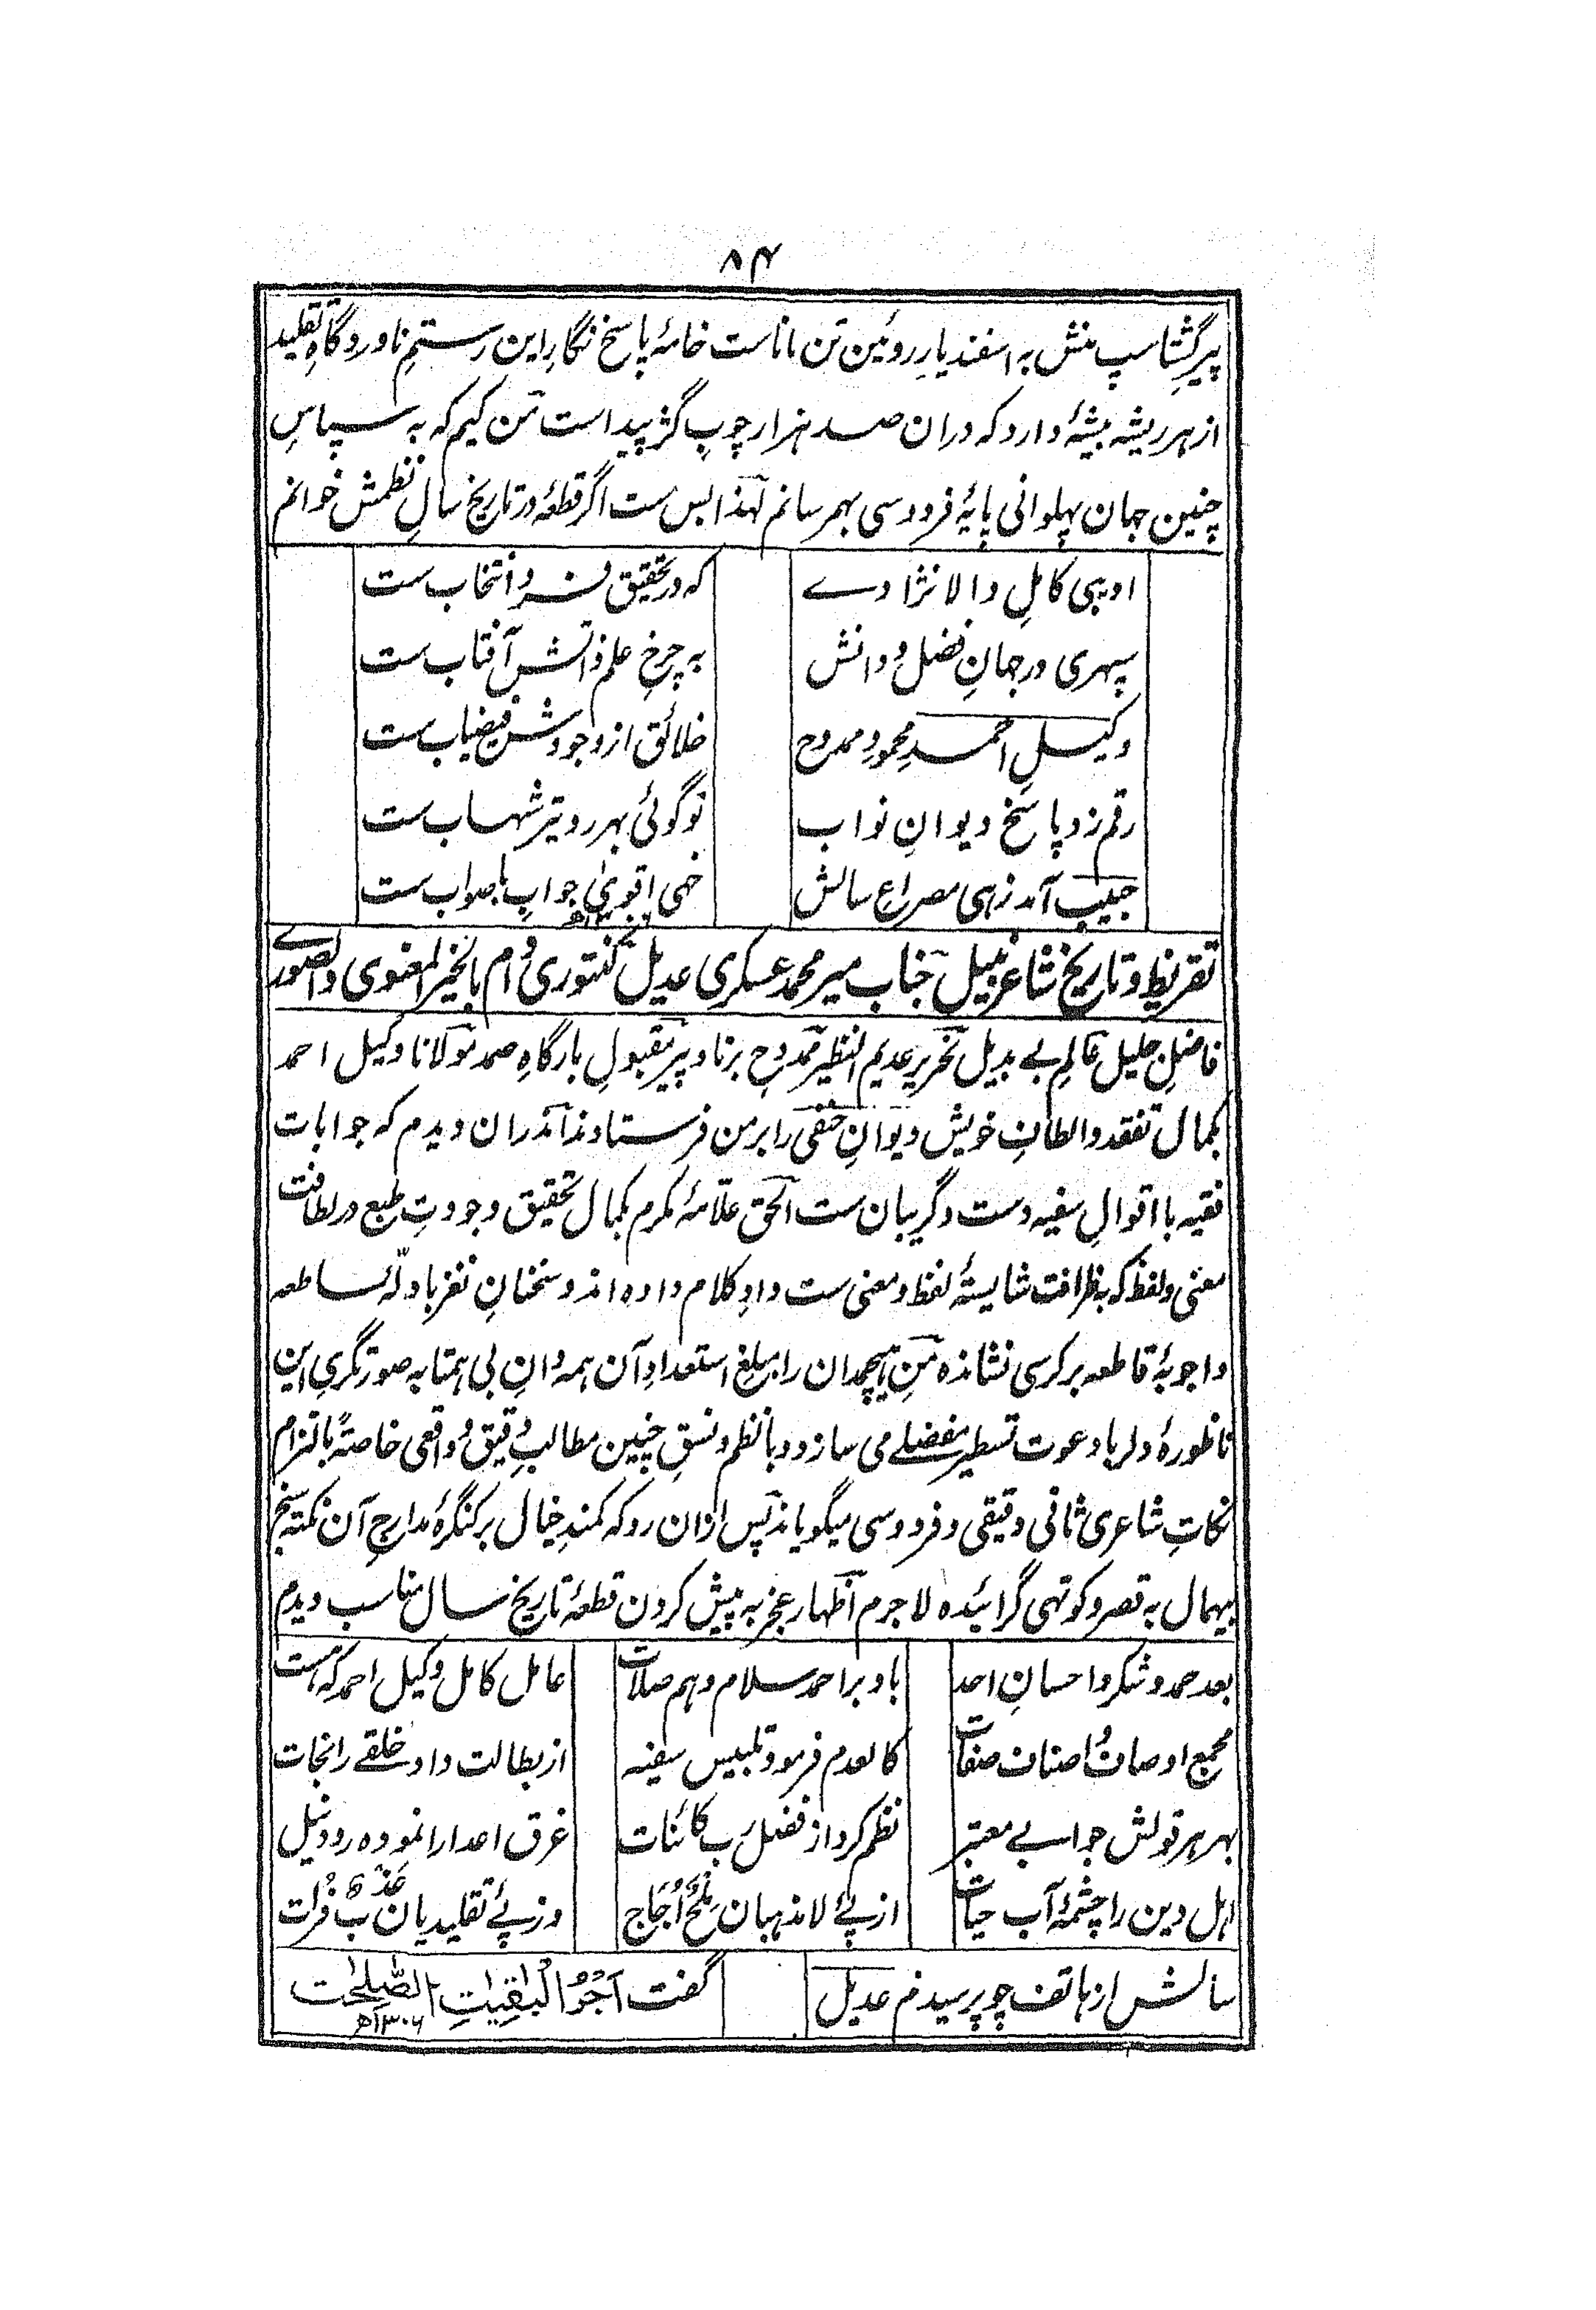 ۸۴
پیرِ گشتاسپ منش به اسفندیارِ روئین تن ماناست خامۂ پاسخ نگارِ این رستمِ ناوردگاهِ تقلید
از هر ریشه بیشۂ دارد که دران صد هزار چوبِ گز پیداست من کیم که به سپاسِ
چنین جهان پهلوانی پایۂ فردوسی بهم رسانم لهذا بس ست اگر قطعۂ در تاریخ سالِ نظمش خوانم
ادیبی کاملِ والا نژادے که در تحقیق فرد و انتخاب ست
سپهری در جهانِ فضل و دانش به چرخِ علم ذاتش آفتاب ست
وکیلِ احمدِ محمود و ممدوح خلائق از وجودش فیضیاب ست
رقم زد پاسخ دیوانِ نواب تو گوئی بهر رد تیر شهاب ست
حبیب آمد زهی مصراعِ سالش خهی اقویٰ جوابِ باصواب ست
۱۳۰۶ھ
تقریظ و تاریخ شاعرِ نبیل جناب میر محمد عسکری عدیل کنتوری دام بالخیر المعنوی والصوری
فاضلِ جلیل عالمِ بے بدیل نحریر عدیم النظیر ممدوحِ برنا و پیر مقبولِ بارگاهِ صمد مولانا وکیل احمد
بکمال تفقد و الطافِ خویش دیوانِ حنفی را بر من فرستادند اندران دیدم که جوابات
فقیه با اقوالِ سفیه دست و گریبان ست الحق علّامۂ مکرم بکمال تحقیق و جودتِ طبع در لطافت
معنی و لفظ که به ظرافت شایستۂ لفظ و معنی ست دادِ کلام داده اند و سخنانِ نغز بادلّۂ ساطعه
و اجوبۂ قاطعه بر کرسی نشانده منِ هیچمدان را مبلغ استعدادِ آن همه دانِ بی همتا به صورتگریِ این
ناظورۂ دلربا دعوت تسطیر مفصلے می سازد و با نظم و نسقِ چنین مطالبِ دقیق و واقعی خاصةً بالتزام
نکاتِ شاعری ثانی دقیقی و فردوسی میگویاند پس ازان رو که کمندِ خیال بر کنگرۂ مدارجِ آن نکته سنج
بیهمال به قصر و کوتهی گرائیده لاجرم اظهار عجز به پیش کردن قطعۂ تاریخ سال مناسب دیدم
بعد حمد و شکر و احسانِ احد باد بر احمد سلام و هم صلات عامل کامل وکیل احمد که هست
مجمع اوصاف و اصناف صفات کالعدم فرمود تلبیس سفیه از بطالت داد خلقے را نجات
بهر هر قولش جوابے معتبر نظم کرد از فضل رب کائنات غرق اعدا را نموده رود نیل
اهل دین را چشمۂ آب حیات از پئے لامذهبان مِلْحٌ اُجَاج وز پئے تقلیدیان عَذْبٌ فُرات
سالش از هاتف چو پرسیدم عدیل گفت اَجْرُ الْبٰقِیٰتِ الصّٰلِحٰت
۱۳۰۶ھ